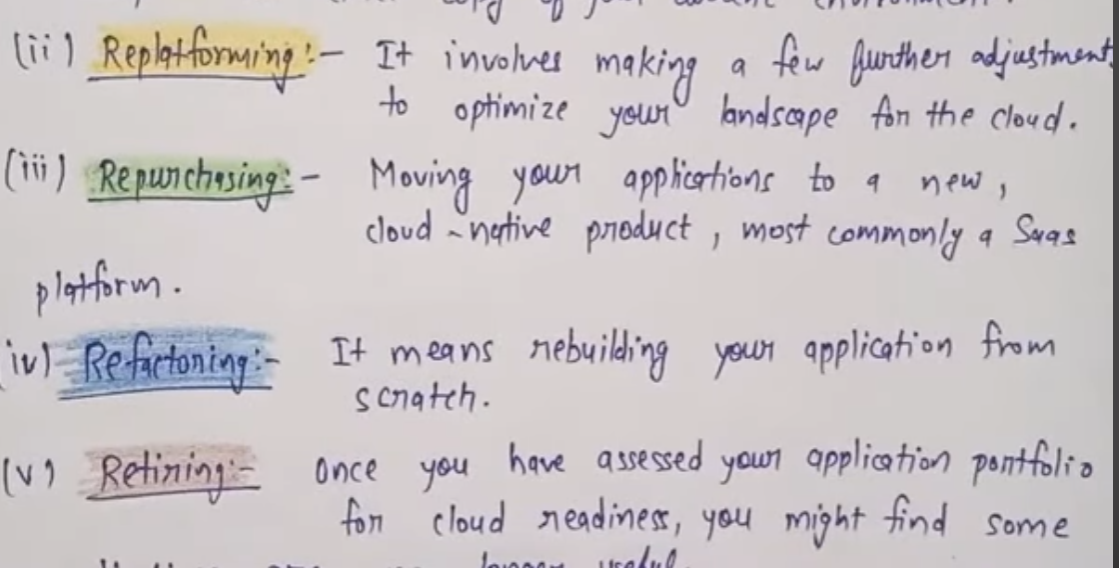 copy of your
(ii) Replatforming:- It involves making a few further adjustment
to optimize your landscape for the cloud.
(iii) Repurchasing:- Moving your applications to a new,
cloud-native product, most commonly a Saas
platform.
iv) Refactoring:- It means rebuilding your application from
scratch.
(v) Retiring:- Once you have assessed your application portfolio
for cloud readiness, you might find some
longer useful.